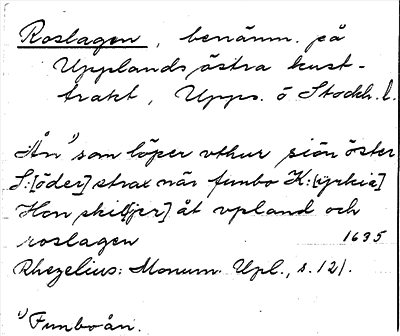 Roslagen, benämn. på
Upplands östra kust-
trakt, Upps. o Stockh. l.
Ån¹⁾ som löper vthur siön öster
S:[öder] strax när funbo K:[yrkia]
Hon skil[jer] åt vpland och
roslagen 1635
Rhezelius: Monum. Upl., s. 121.
¹⁾ Funboån.